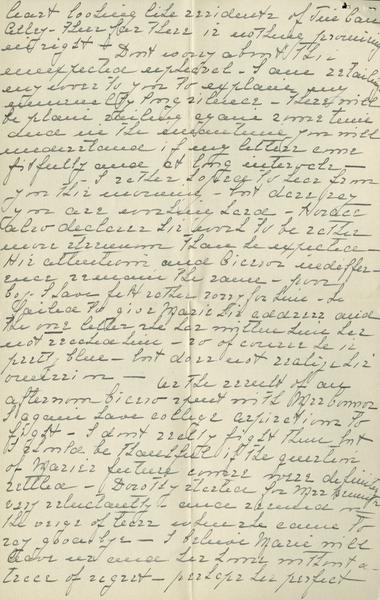 least looking like residents of Tin Can
Alley - thus far there is nothing promising
in sight - Don't worry about this
unexpected upheaval - I am retailing
my woes to you to explain my
long silence - There will
be plain sailing again some time
and in the meantime you will
understand if my letters come
fitfully and at long intervals -
I rather hoped to hear from
you this morning - but dare say
you are working hard - Horace
also declares his work to be rather
more strenuous than he expected
His attentions and Cicero's indiffer-
ence remain the same - poor
boy I have felt rather sorry for him - he
failed to give Marie his address and
the one letter she has written him he
not received - so of course he is
pretty blue - but does not realize his
omission - as the result of an
afternoon Cicero spent with Mrs Connor
I again have college aspirations to
fight - I don't really fight them but
I should be thankful if the question
of Marie's future were definitely
settled - Dorothy started for Mrs
very reluctantly and seemed on
the verge of tears when she came to
say goodbye - I believe Marie will
leave us and her home without a
trace of regret - perhaps her perfect